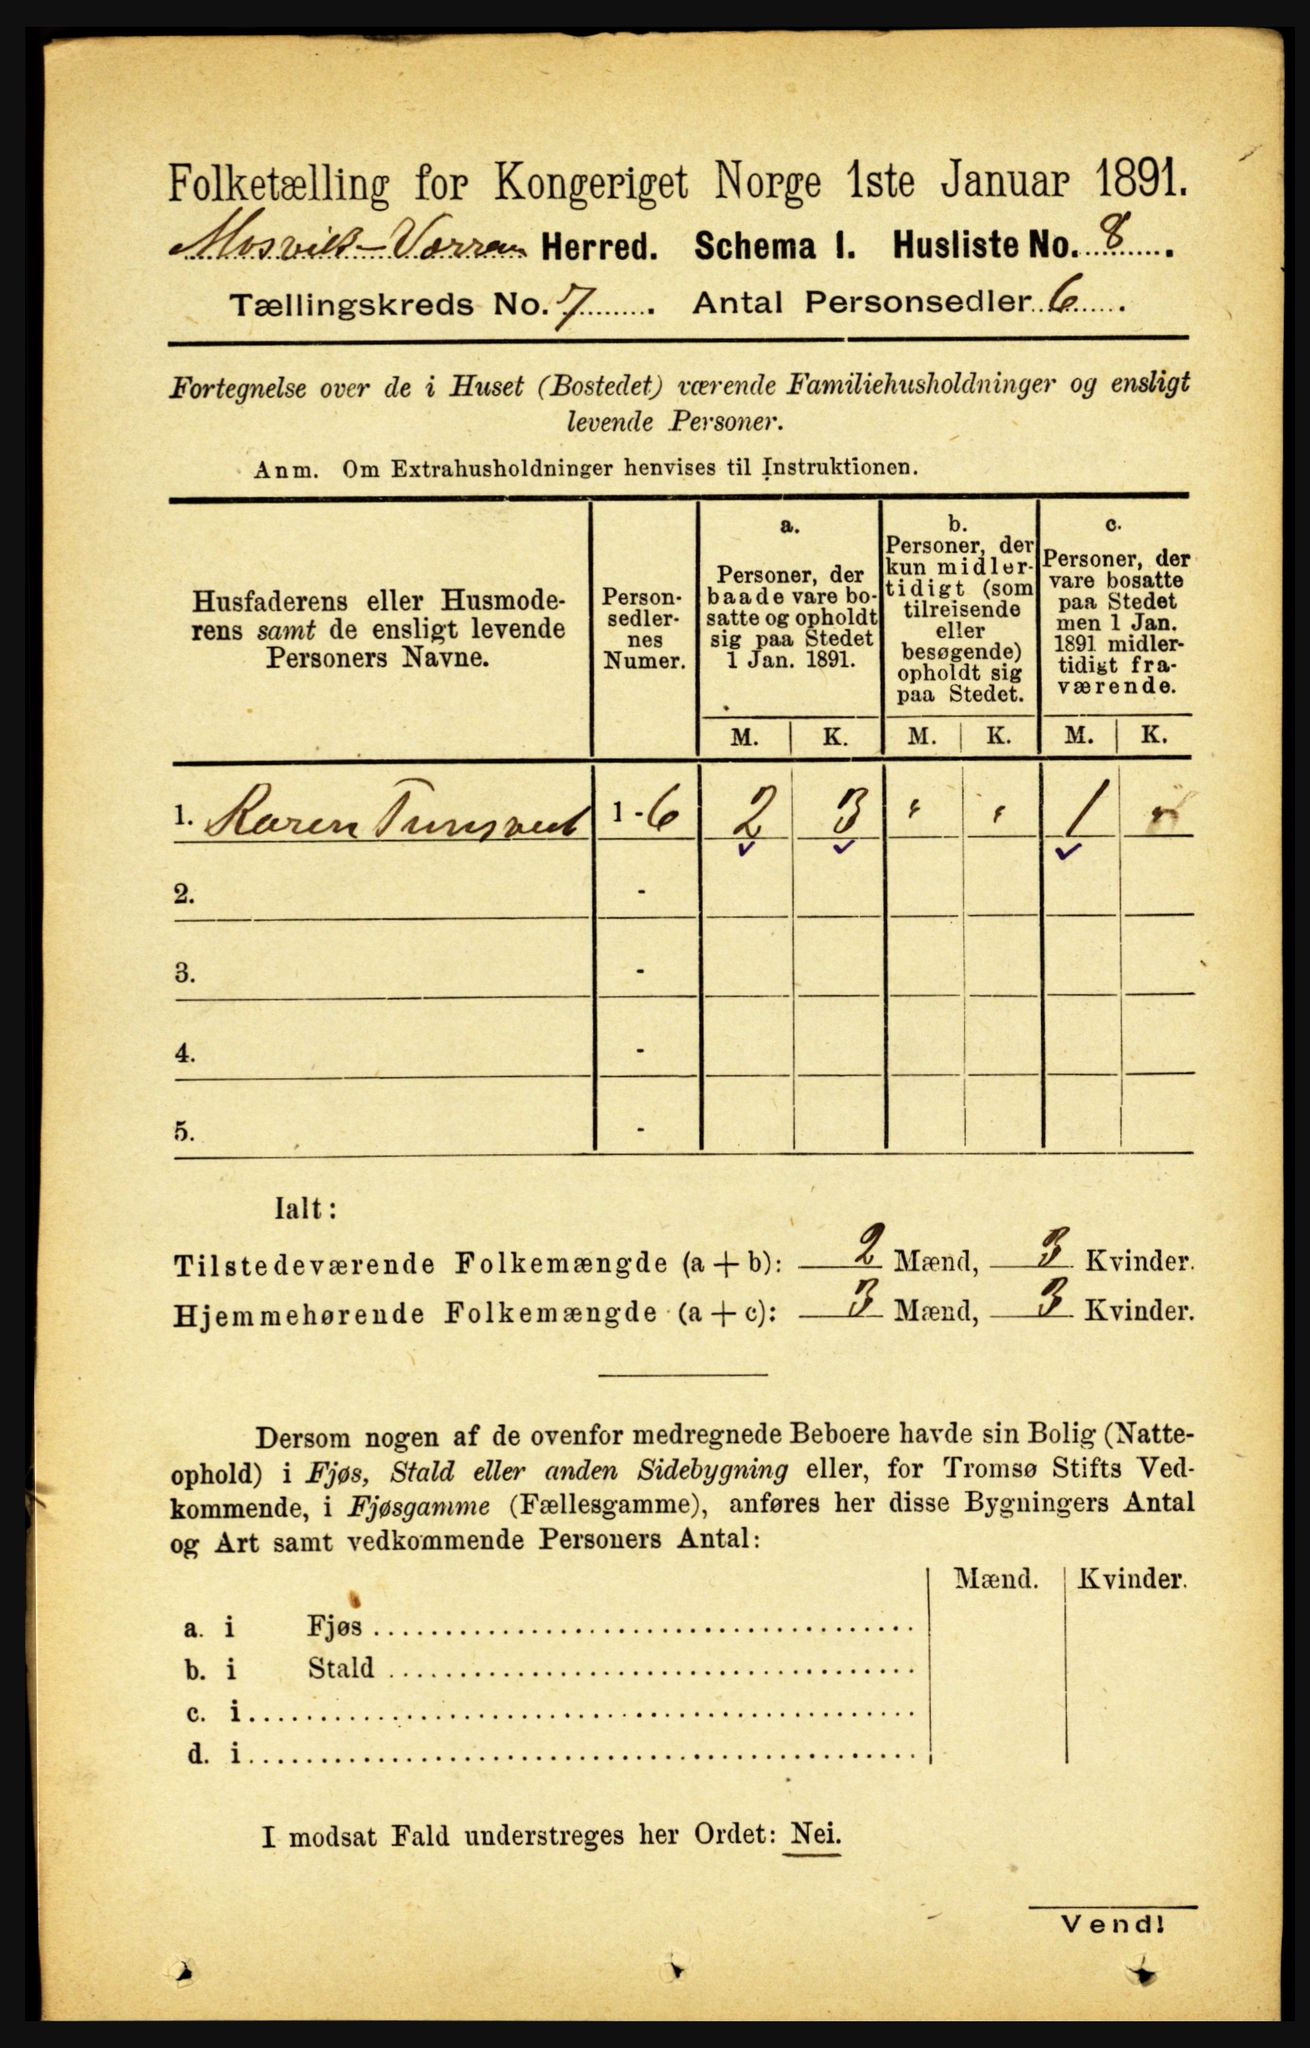 Folketælling for Kongeriget Norge 1ste Januar 1891.
Mosvik-Verran Herred. Schema 1. Husliste No. 8.
Tællingskreds No. 7. Antal Personsedler 6.
Fortegnelse over de i Huset (Bostedet) værende Familiehusholdninger og ensligt
levende Personer.
Anm. Om Extrahusholdninger henvises til Instruktionen.
Husfaderens eller Husmode-
rens samt de ensligt levende
Personers Navne.
Person-
sedler-
nes
Numer.
a.
Personer, der
baade vare bo-
satte og opholdt
sig paa Stedet
1 Jan. 1891.
b.
Personer, der
kun midler-
tidigt (som
tilreisende
eller
besøgende)
opholdt sig
paa Stedet.
c.
Personer, der
vare bosatte
paa Stedet
men 1 Jan.
1891 midler-
tidigt fra-
værende.
M. K. M. K. M. K.
1. Karen 1-6 2 3 " " 1 "
2. -
3. -
4. -
5. -
Ialt:
Tilstedeværende Folkemængde (a+b): 2 Mænd, 3 Kvinder.
Hjemmehørende Folkemængde (a+c): 3 Mænd, 3 Kvinder.
Dersom nogen af de ovenfor medregnede Beboere havde sin Bolig (Natte-
ophold) i Fjøs, Stald eller anden Sidebygning eller, for Tromsø Stifts Ved-
kommende, i Fjøsgamme (Fællesgamme), anføres her disse Bygningers Antal
og Art samt vedkommende Personers Antal:
Mænd. Kvinder.
a. i Fjøs
b. i Stald
c. i
d. i
I modsat Fald understreges her Ordet: Nei.
Vend!